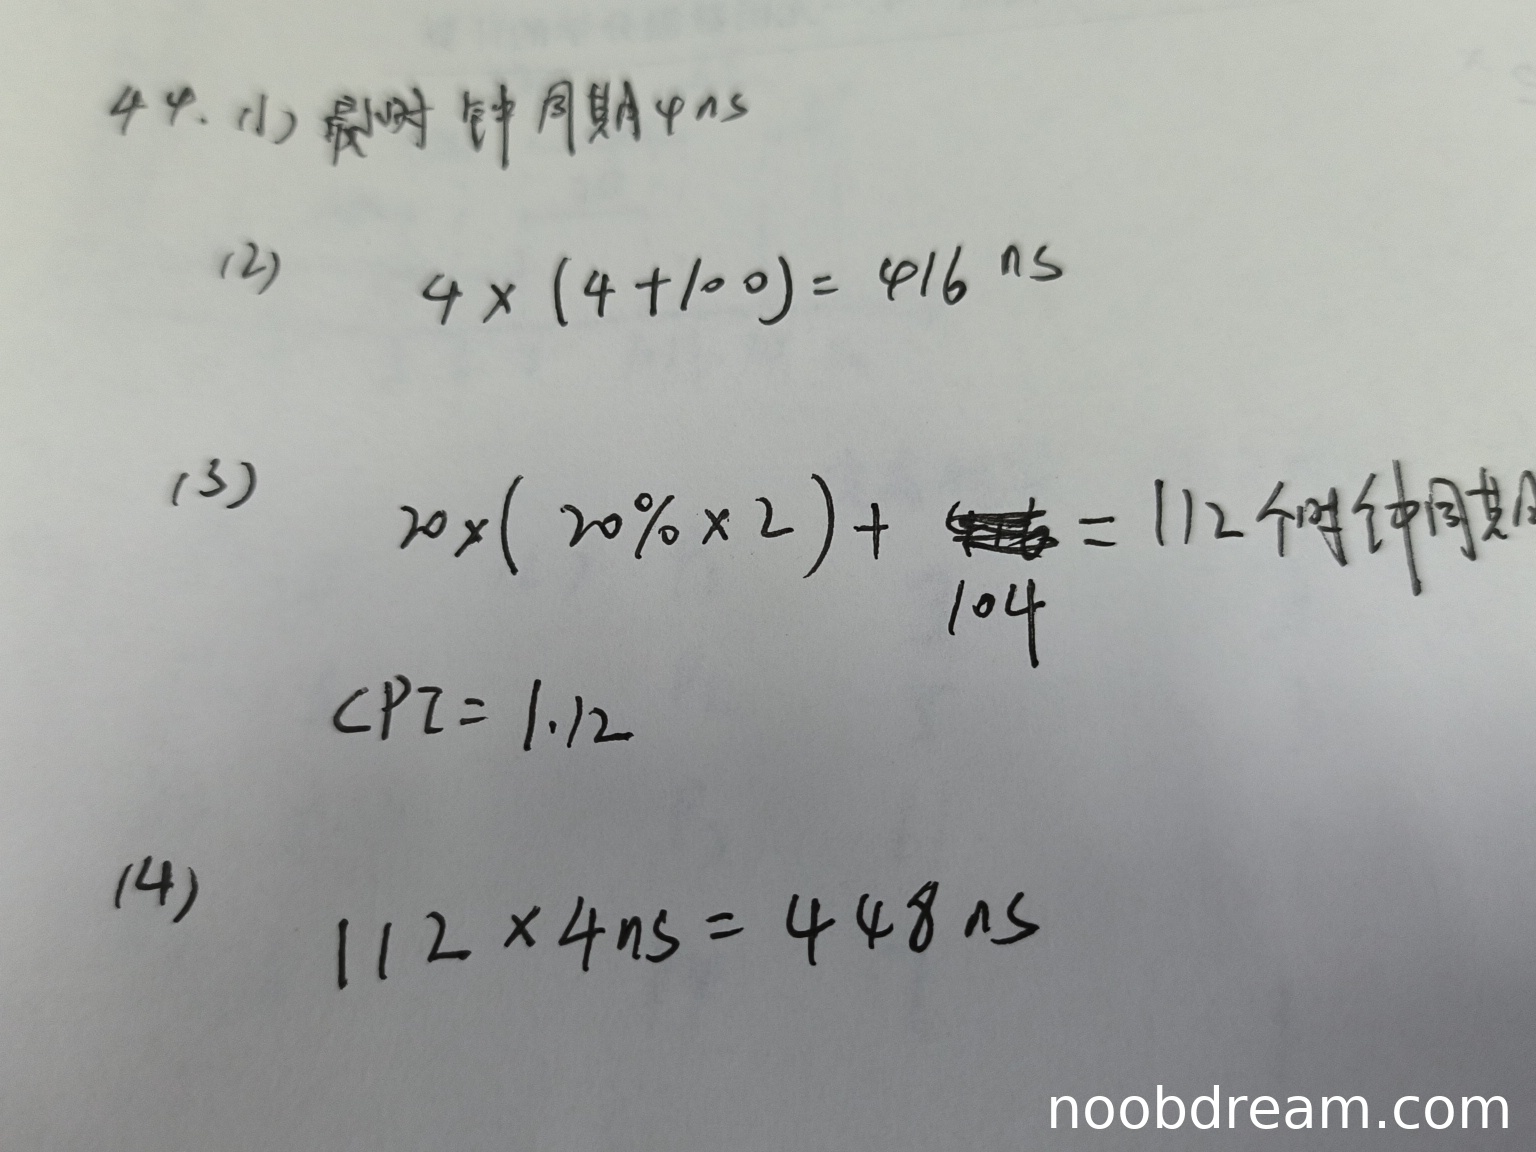 44. (1) 最小时钟周期4ns
(2) 4 × (4+100) = 416 ns
(3) 20×( 20% × 2 ) + 104 = 112个时钟周期
CPI = 1.12
(4) 112 × 4ns = 448 ns
noobdream.com